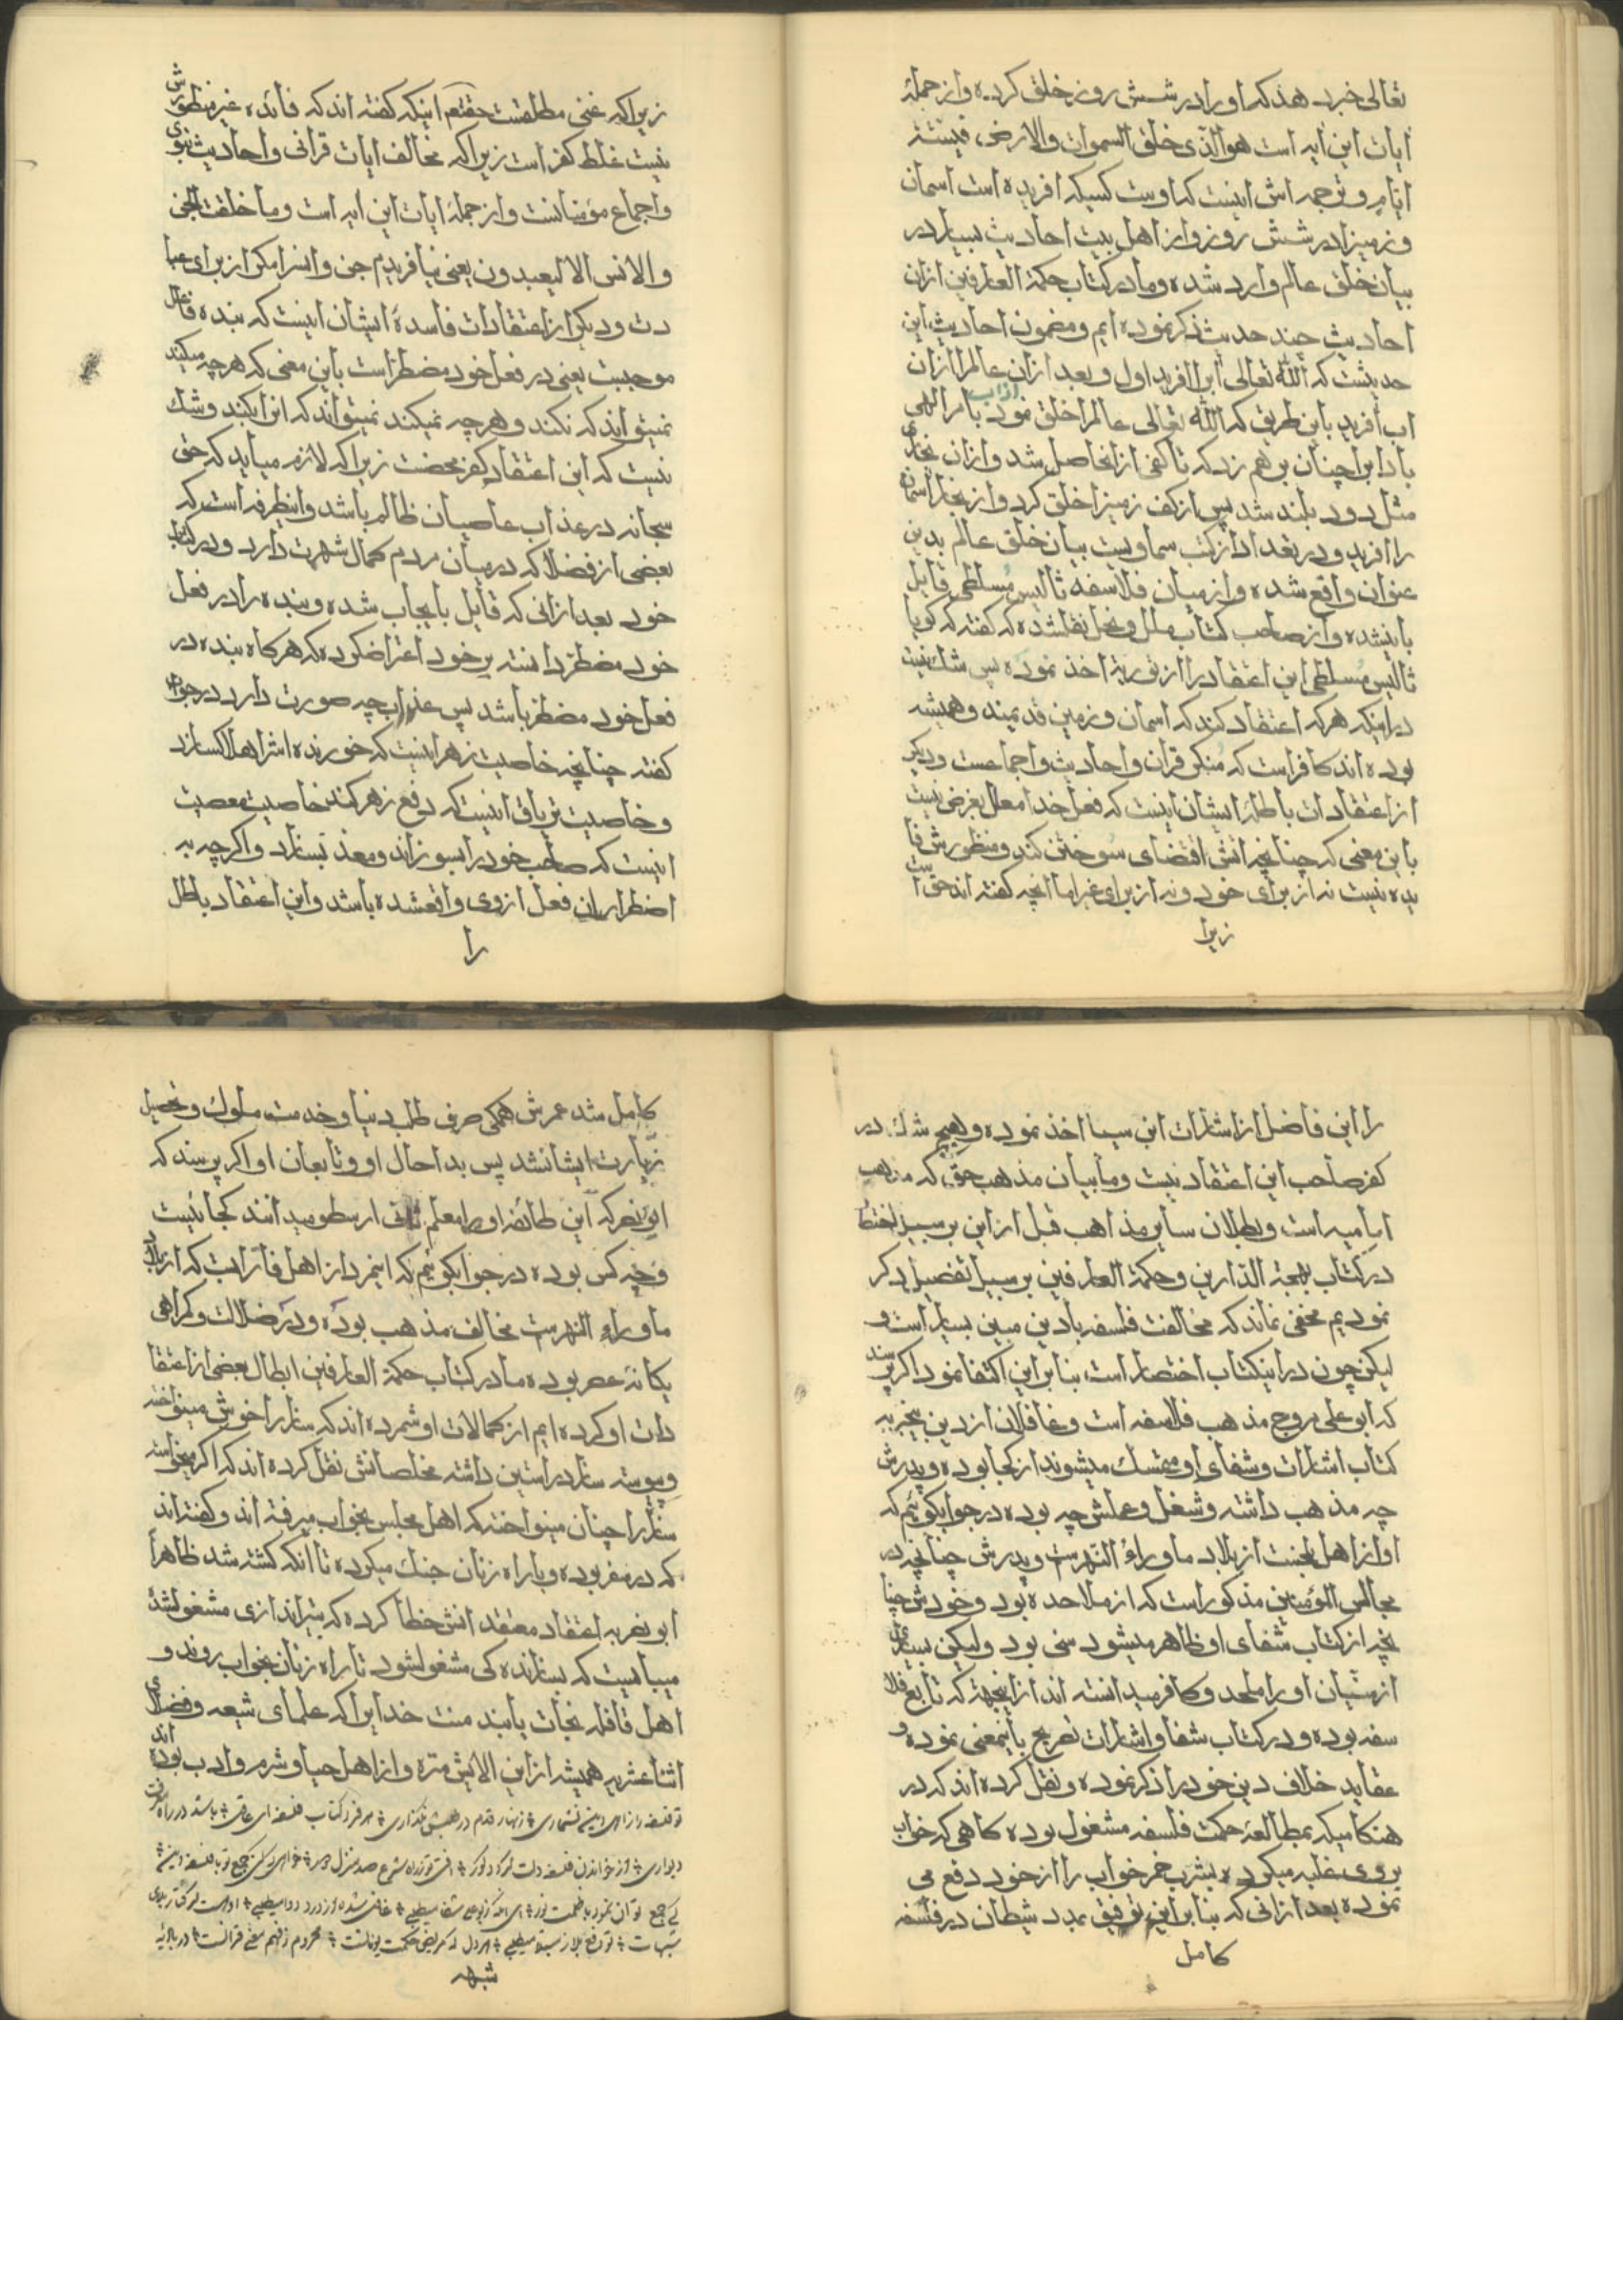 تعالی خبر دهد که او را در شش روز خلق کرده و از جملهٔ
آیات این آیه است هو الذی خلق السموات والارض فی ستة
ایام و ترجمه اش اینست که اوست کسیکه افریده است اسمان
و زمین را در شش روز و از اهل بیت احادیث بسیار در
بیان خلق عالم وارد شده و ما در کتاب حکمة العارفین ازان
احادیث چند حدیث ذکر نموده ایم و مضمون احادیث این
حدیثست که الله تعالی آب را افرید اول و بعد ازان عالم را ازان
اب آفرید باین طریق که الله تعالی عالم را خلق نمود از آب بامر الهی
باد اب را چنان بر هم زد که تا کفی از او حاصل شد و ازان بخاری
مثل دود بلند شد پس از کف زمین را خلق کرد و از بخار اسمان
را افرید و در بعد ادا از کتب سماویست بیان خلق عالم بدین
عنوان واقع شده و از میان فلاسفه ثالیس ملطی قایل
باین شده و از صاحب کتاب ملل و نحل نقل شده که گفته که گویا
ثالیس ملطی این اعتقاد را از توریة اخذ نموده پس شک نیست
در اینکه هر که اعتقاد کند که اسمان و زمین قدیمند و همیشه
بوده اند کافر است که منکر قران و احادیث و اجماعست و دیگر
از اعتقادات باطلهٔ ایشان اینست که فعل خدا معلل بغرض نیست
باین معنی که چنانچه اتش اقتضای سوختن کند و منظورش فا
یده نیست نه از برای خود و نه از برای غیر اما انچه گفته اند حق است
زیرا
زیرا که غنی مطلقست حقتعم اینکه گفته اند که فائده غیر منظورش
نیست غلط کفر است زیرا که مخالف ایات قرانی و احادیث نبوی
و اجماع مؤمنانست و از جملهٔ ایات این ایه است وما خلقت الجن
والانس الا لیعبدون یعنی نیافریدم جن و انس را مگر از برای عبا
دت و دیگر از اعتقادات فاسدهٔ ایشان اینست که بنده فاعل
موجبست یعنی در فعل خود مضطر است باین معنی که هر چه میکند
نمیتواند که نکند و هر چه نمیکند نمیتواند که انرا بکند و شک
نیست که این اعتقاد کفر محضست زیرا که لازم میاید که حق
سبحانه در عذاب عاصیان ظالم باشد و اینطرفه است که
بعضی از فضلا که در میان مردم کمال شهرت دارد و در کتاب
خود بعد ازانی که قایل بایجاب شده و بنده را در فعل
خود مضطر دانسته بر خود اعتراض کرده که هر گاه بنده در
فعل خود مضطر باشد پس عذاب چه صورت دارد در جواب
گفته چنانچه خاصیت زهر اینست که خورنده اش را هلاک سازد
و خاصیت تریاق اینست که دفع زهر کند خاصیت معصیت
اینست که صاحب خود را بسوزاند و معذب سازد و اگر چه به
اضطرار ان فعل از وی واقع شده باشد و این اعتقاد باطل
را
را این فاضل از اشارات ابن سینا اخذ نموده و هیچ شک در
کفر صاحب این اعتقاد نیست و ما بیان مذهب حق که مذهب
امامیه است و بطلان سایر مذاهب قبل از این بر سبیل اختصار
در کتاب بهجة الدارین و حکمة العارفین بر سبیل تفصیل ذکر
نمودیم مخفی نماند که مخالفت فلسفه با دین مبین بسیار است و
لیکن چون در اینکتاب اختصار است بنابراین اکتفا نمود اگر پرسند
که ابو علی مروج مذهب فلاسفه است و غافلان از دین بیخبر به
کتاب اشارات و شفای او متمسک میشوند از کجا بوده و پدرش
چه مذهب داشته و شغل و عملش چه بوده در جواب گوئیم که
او از اهل بلخست از بلاد ماوراء النهرست و پدرش چنانچه در
مجالس المؤمنین مذکور است که از ملاحده بود و خودش چنا
نچه از کتاب شفای او ظاهر میشود سنی بود ولیکن بسیاری
از سنیان او را ملحد و کافر میدانسته اند از اینجهة که تابع فلا
سفه بوده و در کتاب شفا و اشارات تصریح باینمعنی نموده و
عقاید خلاف دین خود را ذکر نموده و نقل کرده اند که در
هنگامیکه بمطالعهٔ حکمت فلسفه مشغول بوده گاهی که خواب
بر وی غلبه میکرده بشرب خمر خواب را از خود دفع می
نموده بعد ازانی که بنابراین توفیق بمدد شیطان در فلسفه
کامل
کامل شد عمرش همگی صرف طلب دنیا و خدمت ملوک و تحصیل
زیارت ایشان شد پس بدا حال او و تابعان او اگر پرسند که
ابو نصر که این طائفه او را معلم ثانی ارسطو میدانند کجائیست
و چه کس بوده در جواب گوئیم که اینمرد از اهل فاراب است که از بلاد
ماوراء النهرست مخالف مذهب بوده و در ضلالت و گمراهی
یگانهٔ عصر بوده ما در کتاب حکمة العارفین ابطال بعضی از اعتقا
دات او کرده ایم از کمالات او شمرده اند که ساز را خوش مینواخته
و پیوسته ساز در استین داشته مخلصانش نقل کرده اند که اگر میخواسته
ساز را چنان مینواخته که اهل مجلس بخواب میرفته اند و گفته اند
که در سفر بوده و با راه زنان جنک میکرده تا انکه کشته شد ظاهرا
ابو نصر به اعتقاد معتقدانش خطا کرده که بتیراندازی مشغول شده
میبایست که بسازندگی مشغول شود تا راه زنان بخواب روند و
اهل قافله نجات یابند منت خدایرا که علمای شیعه و فضلای
اثنا عشریه همیشه از این الایش منزه و از اهل حیا و شرم و ادب بوده اند
تو فلسفه را از دین نشماری زنهار قدم در طلبش نگذاری هر فرد کتاب فلسفه ای عاقل باشد در راه
دیواری از خواندن فلسفه دلت کور
شبهه